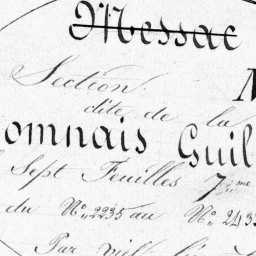 Messac
Section
dite de la
omnais Guil
Sept Feuilles 7me
du No. 2235 au No. 243
Par